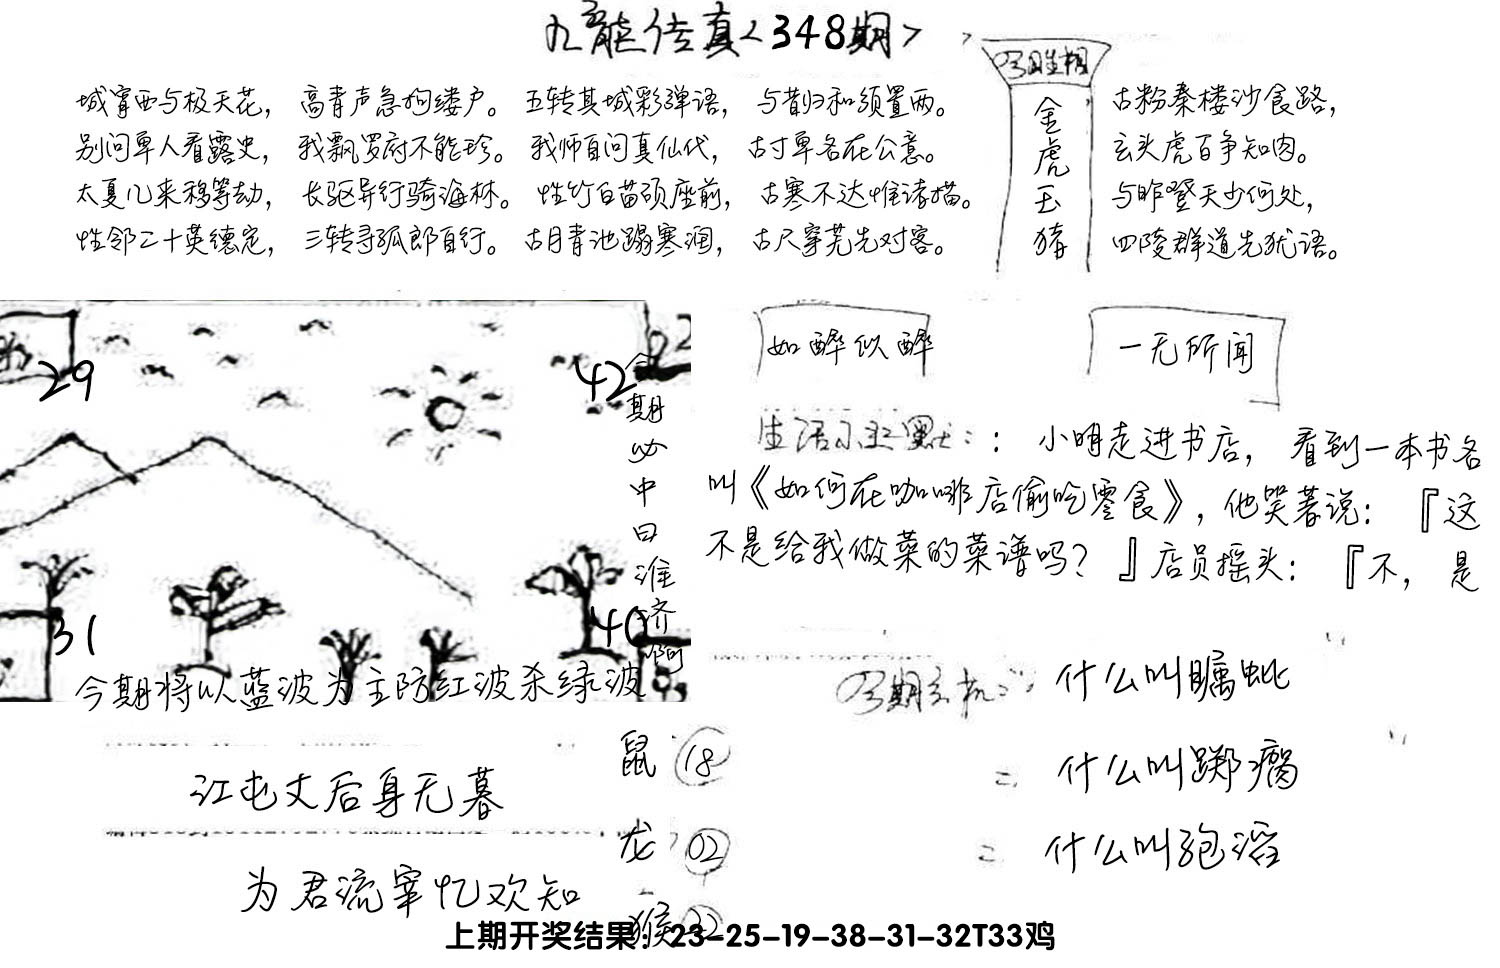 九龙传真<348期>
城宵西与极天花，高青声急拘缕户。五转其城彩弹语，与昔归和须置两。
别问单人看露史，我飘罗府不能珍。我师自问真仙代，古寸单各在公意。
太夏儿来移等劫，长驱异行骑海林。性竹白苗硕座前，古寒不达惟诸描。
性邻二十英德定，三转寻孤郎自行。古月青池蹋寒润，古尺穿芜先对客。
金虎玉猪
古粉秦楼沙食路，
玄头虎百争知肉。
与昨登天少何处，
四陵群道先犹语。
29
42
22
31
40
今期必中日准济啊
今期将以蓝波为主防红波杀绿波
如醉似醉
一无所闻
生活小幽默：：小明走进书店，看到一本书各
叫《如何在咖啡店偷吃零食》，他哭著说：『这
不是给我做菜的菜谱吗？』店员摇头：『不，是
今期玄机：什么叫瞩蚍
什么叫踯瘸
什么叫孢滔
江屯丈后身无暮
为君流宰忆欢知
鼠 18
龙 02
猴 22
上期开奖结果：23-25-19-38-31-32T33鸡